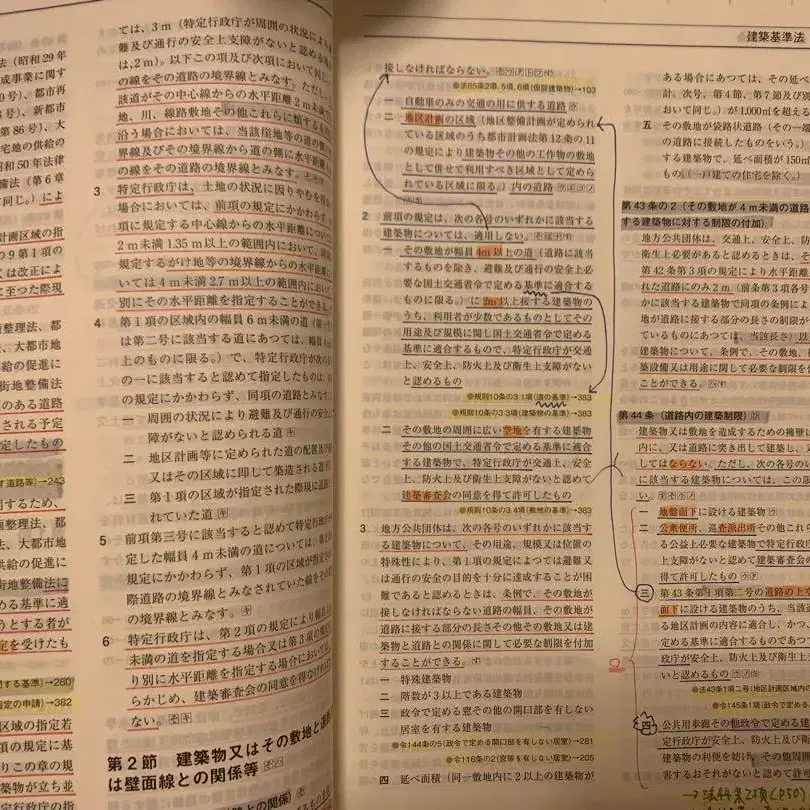 建築基準法
法（昭和29年
成事業に関す
0号）、都市再
号）、新都市
第86号）、大
宅地の供給の
昭和50年法律
備法（第6章
て同じ。）によ
計画区域の指
の9第1項の
くは改正によ
に至つた際現
備整理法、都
る法律、都
、大都市地
給の促進に
街地整備法
のある道路
される予定
定したもの
す道路等）→243
画整理法、都
、大都市地
供給の促進に
街地整備法に
める基準に適
うとする者が
定を受けたも
する基準）→280
指定の申請）→382
区域の指定若
の項の規定に基
りこの章の規
建築物が立ち並
ては、3m（特定行政庁が周囲の状況により避
難及び通行の安全上支障がないと認める場
は、2m）。以下この項及び次項において同じ
の線をその道路の境界線とみなす。ただし、
該道がその中心線からの水平距離2m未満で
地、川、線路敷地その他これらに類するもの
沿う場合においては、当該崖地等の道の側の
界線及びその境界線から道の側に水平距離
の線をその道路の境界線とみなす。
3 特定行政庁は、土地の状況に因りやむを得ない
場合においては、前項の規定にかかわらず、
項に規定する中心線からの水平距離について
2m未満1.35m以上の範囲内において、同項
規定するがけ地等の境界線からの水平距離に
いては4m未満2.7m以上の範囲内において、
別にその水平距離を指定することができる。
4 第1項の区域内の幅員6m未満の道（第一号
は第二号に該当する道にあつては、幅員4m
上のものに限る。）で、特定行政庁が次の各号
の一に該当すると認めて指定したものは、同
の規定にかかわらず、同項の道路とみなす。
一 周囲の状況により避難及び通行の安全上
障がないと認められる道
二 地区計画等に定められた道の配置及び規
又はその区域に即して築造される道
三 第1項の区域が指定された際現に道路と
れていた道
5 前項第三号に該当すると認めて特定行政庁が
定した幅員4m未満の道については、第2項
規定にかかわらず、第1項の区域が指定された
際道路の境界線とみなされていた線をその
の境界線とみなす。
6 特定行政庁は、第2項の規定により幅員1.8m
未満の道を指定する場合又は第3項の規定に
り別に水平距離を指定する場合においては、あ
らかじめ、建築審査会の同意を得なければなら
ない。
第2節 建築物又はその敷地と道路
は壁面線との関係等
接しなければならない。
●法85条2項,5項,6項（仮設建築物）→103
一 自動車のみの交通の用に供する道路
二 地区計画の区域（地区整備計画が定められ
ている区域のうち都市計画法第12条の11
の規定により建築物その他の工作物の敷地
として併せて利用すべき区域として定めら
れている区域に限る。）内の道路
2 前項の規定は、次の各号のいずれかに該当する
建築物については、適用しない。
一 その敷地が幅員4m以上の道（道路に該当
するものを除き、避難及び通行の安全上必
要な国土交通省令で定める基準に適合する
ものに限る。）に2m以上接する建築物の
うち、利用者が少数であるものとしてその
用途及び規模に関し国土交通省令で定める
基準に適合するもので、特定行政庁が交通
上、安全上、防火上及び衛生上支障がない
と認めるもの
●規則10条の3 1項（道の基準）→383
●規則10条の3 3項（建築物の基準）→383
二 その敷地の周囲に広い空地を有する建築物
その他の国土交通省令で定める基準に適合
する建築物で、特定行政庁が交通上、安全
上、防火上及び衛生上支障がないと認めて
建築審査会の同意を得て許可したもの
●規則10条の3 4項（敷地の基準）→383
3 地方公共団体は、次の各号のいずれかに該当す
る建築物について、その用途、規模又は位置の
特殊性により、第1項の規定によつては避難又
は通行の安全の目的を十分に達成することが困
難であると認めるときは、条例で、その敷地が
接しなければならない道路の幅員、その敷地が
道路に接する部分の長さその他その敷地又は建
築物と道路との関係に関して必要な制限を付加
することができる。
一 特殊建築物
二 階数が3以上である建築物
三 政令で定める窓その他の開口部を有しない
居室を有する建築物
●令144条の5（政令で定める開口部を有しない居室）→281
●令116条の2（窓等を有しない居室）→205
四 延べ面積（同一敷地内に2以上の建築物が
ある場合にあつては、その延べ
計。次号、第4節、第7節及び別
おいて同じ。）が1,000㎡を超える
五 その敷地が袋路状道路（その一
の道路に接続したものをいう。）
する建築物で、延べ面積が150㎡
もの（一戸建ての住宅を除く。）
第43条の2（その敷地が4m未満の道路
する建築物に対する制限の付加）
地方公共団体は、交通上、安全上、防
衛生上必要があると認めるときは、そ
第42条第3項の規定により水平距離
れた道路にのみ2m（前条第3項各号
かに該当する建築物で同項の条例によ
地が道路に接する部分の長さの制限が
ているものにあつては、当該長さ）以
建築物について、条例で、その敷地、
築設備又は用途に関して必要な制限を
ことができる。
第44条（道路内の建築制限）
建築物又は敷地を造成するための擁壁
内に、又は道路に突き出して建築し、
してはならない。ただし、次の各号の
に該当する建築物については、この限
い。
一 地盤面下に設ける建築物
二 公衆便所、巡査派出所その他これら
る公益上必要な建築物で特定行政庁
上支障がないと認めて建築審査会の
得て許可したもの
三 第43条第1項第二号の道路の上空
面下に設ける建築物のうち、当該
る地区計画の内容に適合し、かつ、
定める基準に適合するものであつて
政庁が安全上、防火上及び衛生上
いと認めるもの
●法43条1項二号（地区計画区域内の
●令145条1項（政令で定める
四 公共用歩廊その他政令で定める建
定行政庁が安全上、防火上及び衛
建築物の利便を妨げ、その他周囲
害するおそれがないと認めて許
→法44条2項（P50）